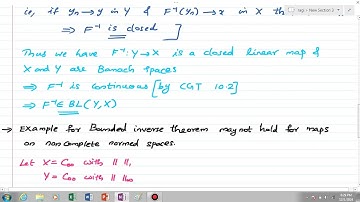 ie, if yn → y in Y & F⁻¹(yn) → x in X th
⇒ F⁻¹ is closed ]
Thus we have F⁻¹: Y → X is a closed linear map &
X and Y are Banach spaces
⇒ F⁻¹ is continuous [by CGT 10.2]
⇒ F⁻¹ ∈ BL(Y,X)
→ Example for Bounded inverse theorem may not hold for maps
on noncomplete normed spaces.
Let X = C₀₀ with ‖ ‖₁
Y = C₀₀ with ‖ ‖∞